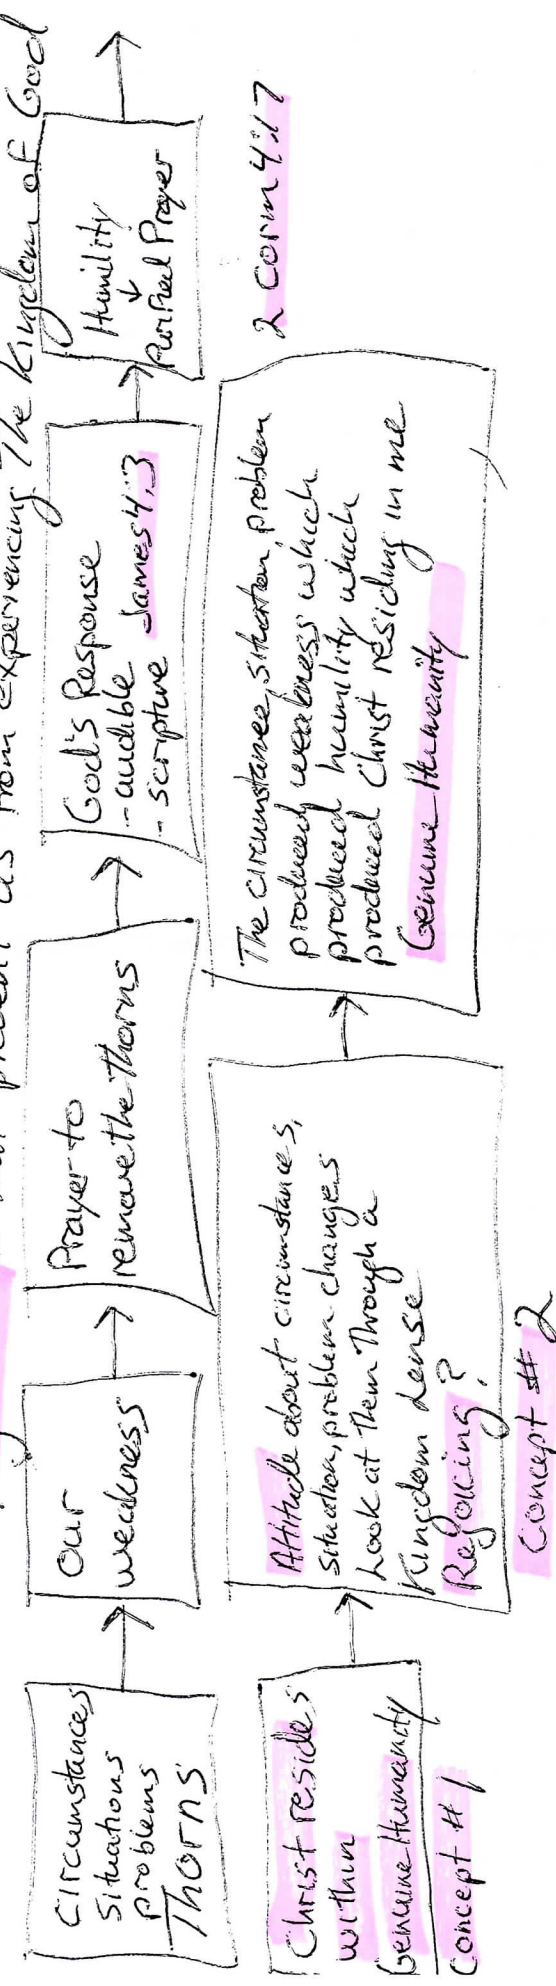 us from experiencing The Kingdom of God
Circumstances
Situations
problems
Thorns
Our
weakness
Prayer to
remove the Thorns
God's Response
- audible
- scripture James 4:3
Humility
↓
Purified Prayer
Christ resides
within
Genuine Humanity
Concept # 1
Attitude about circumstances,
situation, problem changes
Look at Them Through a
Kingdom Lense
Rejoicing?
Concept # 2
The circumstance, situation, problem
produced weakness which
produced humility which
produced Christ residing in me
Genuine Humanity
2 Corin 4:17